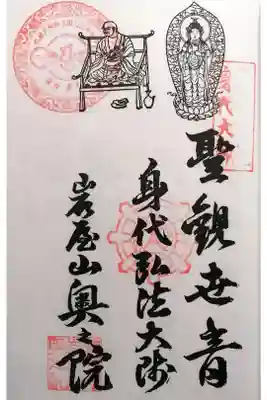 聖觀世音
身代弘法大师
岩屋山奥之院